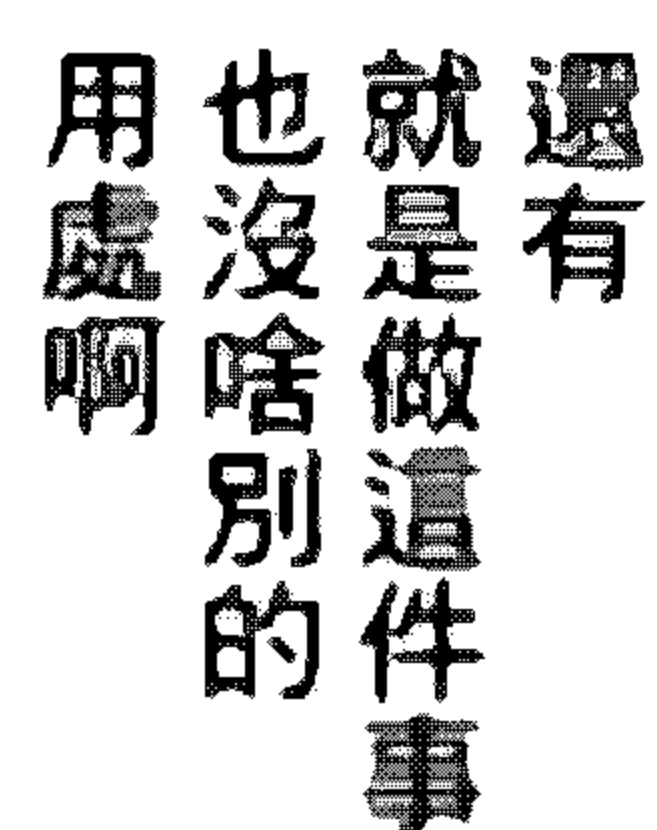 還有
就是做這件事
也沒啥別的
用處啊